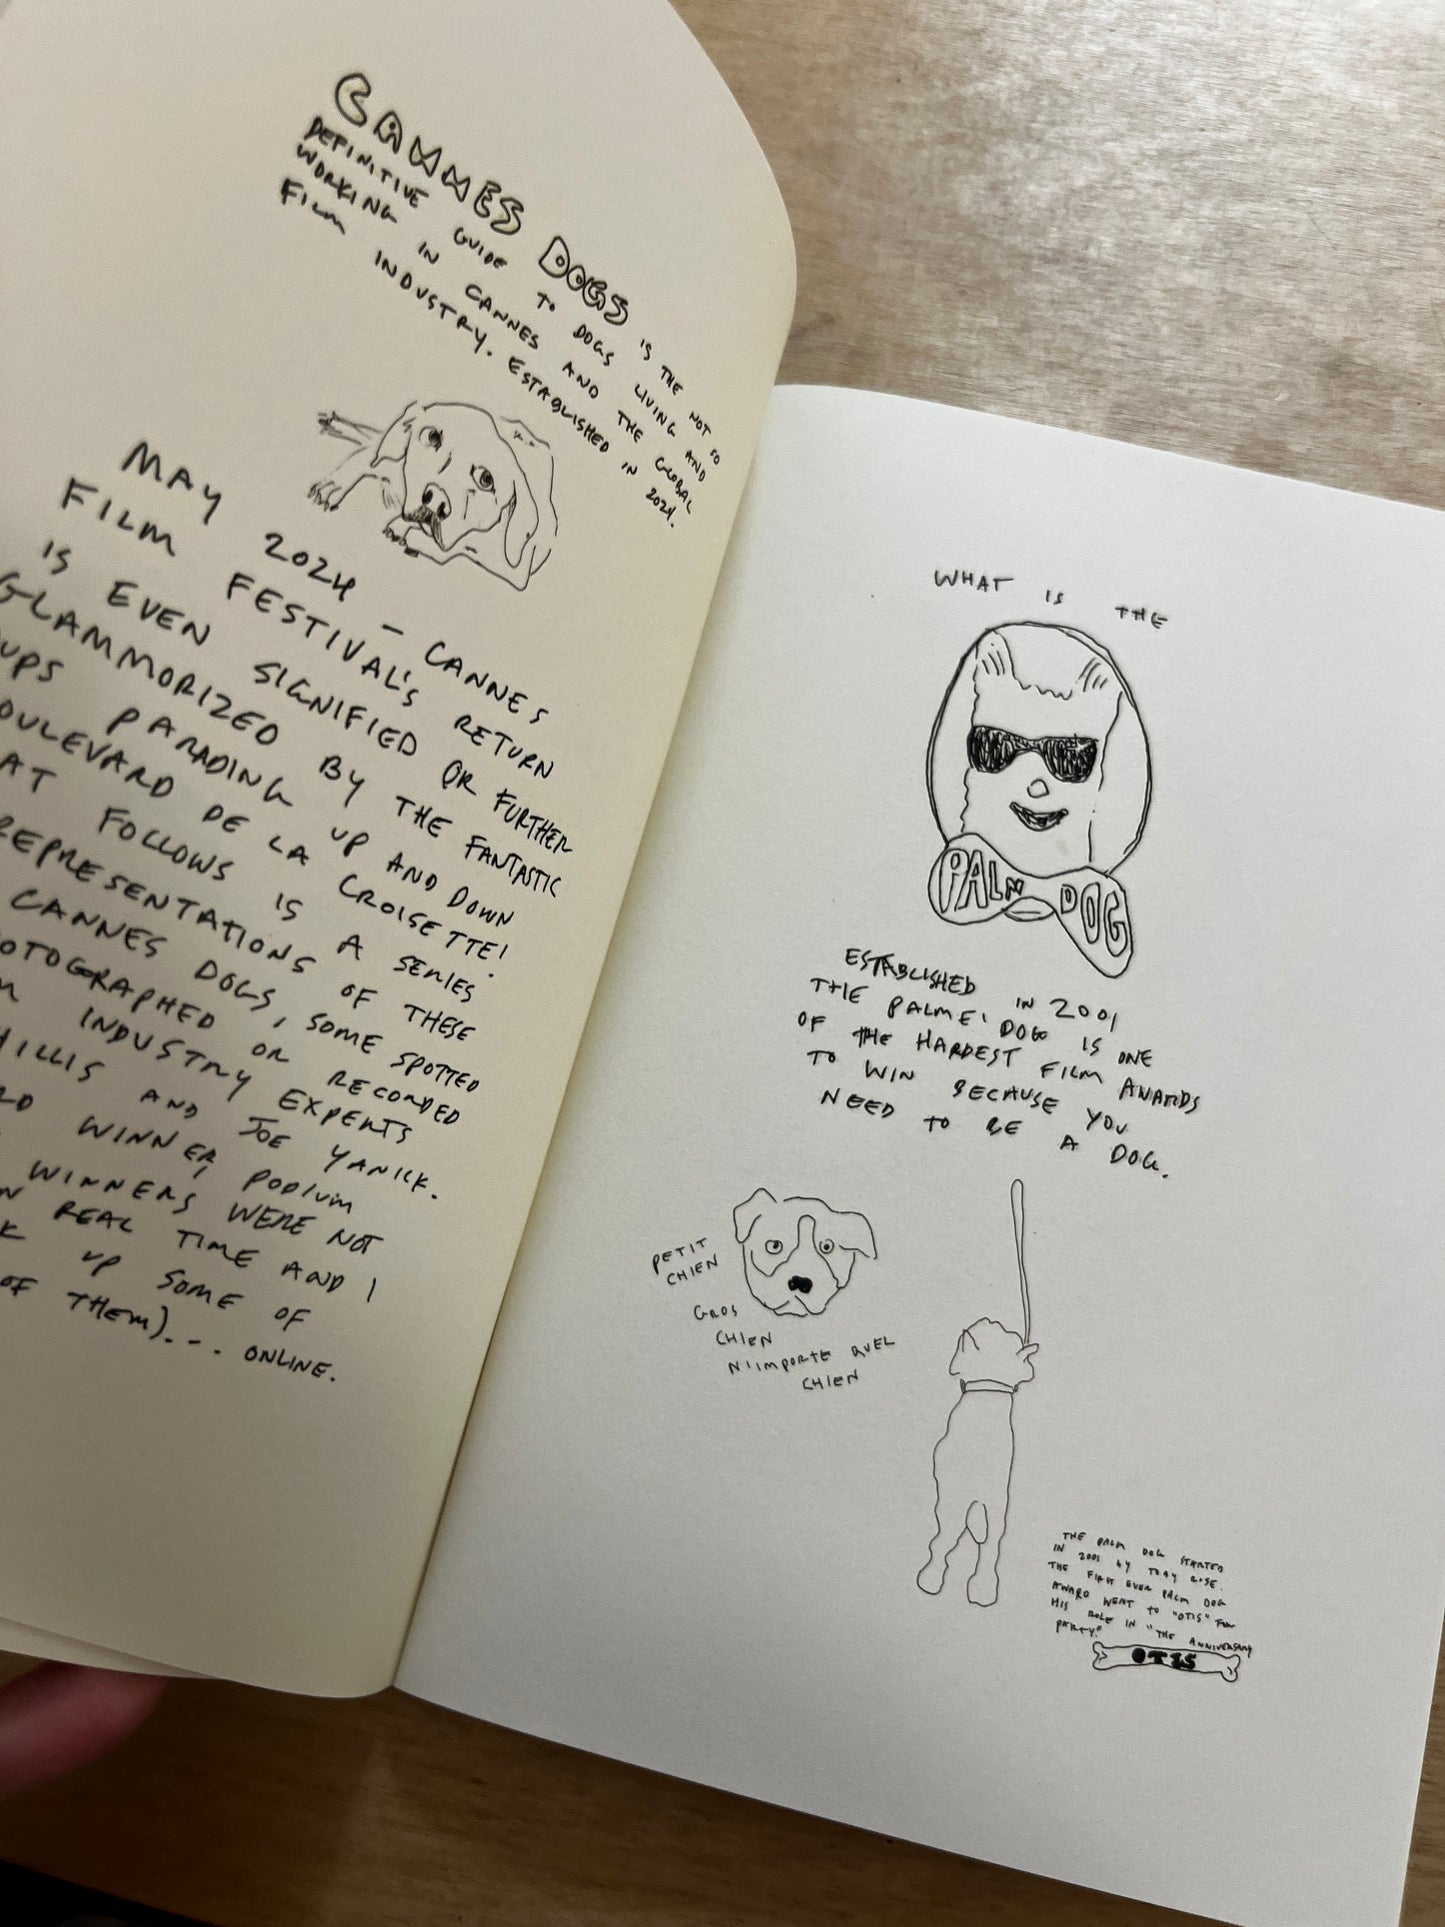 CANNES DOGS IS THE NOT SO
DEFINITIVE GUIDE TO DOGS LIVING AND
WORKING IN CANNES AND THE GLOBAL
FILM INDUSTRY. ESTABLISHED IN 2024.
MAY 2024 – CANNES
FILM FESTIVAL'S RETURN
IS EVEN SIGNIFIED OR FURTHER
GLAMMORIZED BY THE FANTASTIC
UPS PARADING UP AND DOWN
OULEVARD DE LA CROISETTE!
AT FOLLOWS IS A SERIES
REPRESENTATIONS OF THESE
CANNES DOGS, SOME SPOTTED
OTOGRAPHED OR RECORDED
M INDUSTRY EXPERTS
HILLIS AND JOE YANICK.
RD WINNER, PODIUM
WINNERS WERE NOT
N REAL TIME AND I
K UP SOME OF
OF THEM)... ONLINE.
WHAT IS THE
PALM DOG
ESTABLISHED IN 2001
THE PALME' DOG IS ONE
OF THE HARDEST FILM AWARDS
TO WIN BECAUSE YOU
NEED TO BE A DOG.
PETIT
CHIEN
GROS
CHIEN
N'IMPORTE QUEL
CHIEN
THE PALM DOG STARTED
IN 2001 BY TOBY ROSE.
THE FIRST EVER PALM DOG
AWARD WENT TO "OTIS" FOR
HIS ROLE IN "THE ANNIVERSARY
PARTY."
OTIS